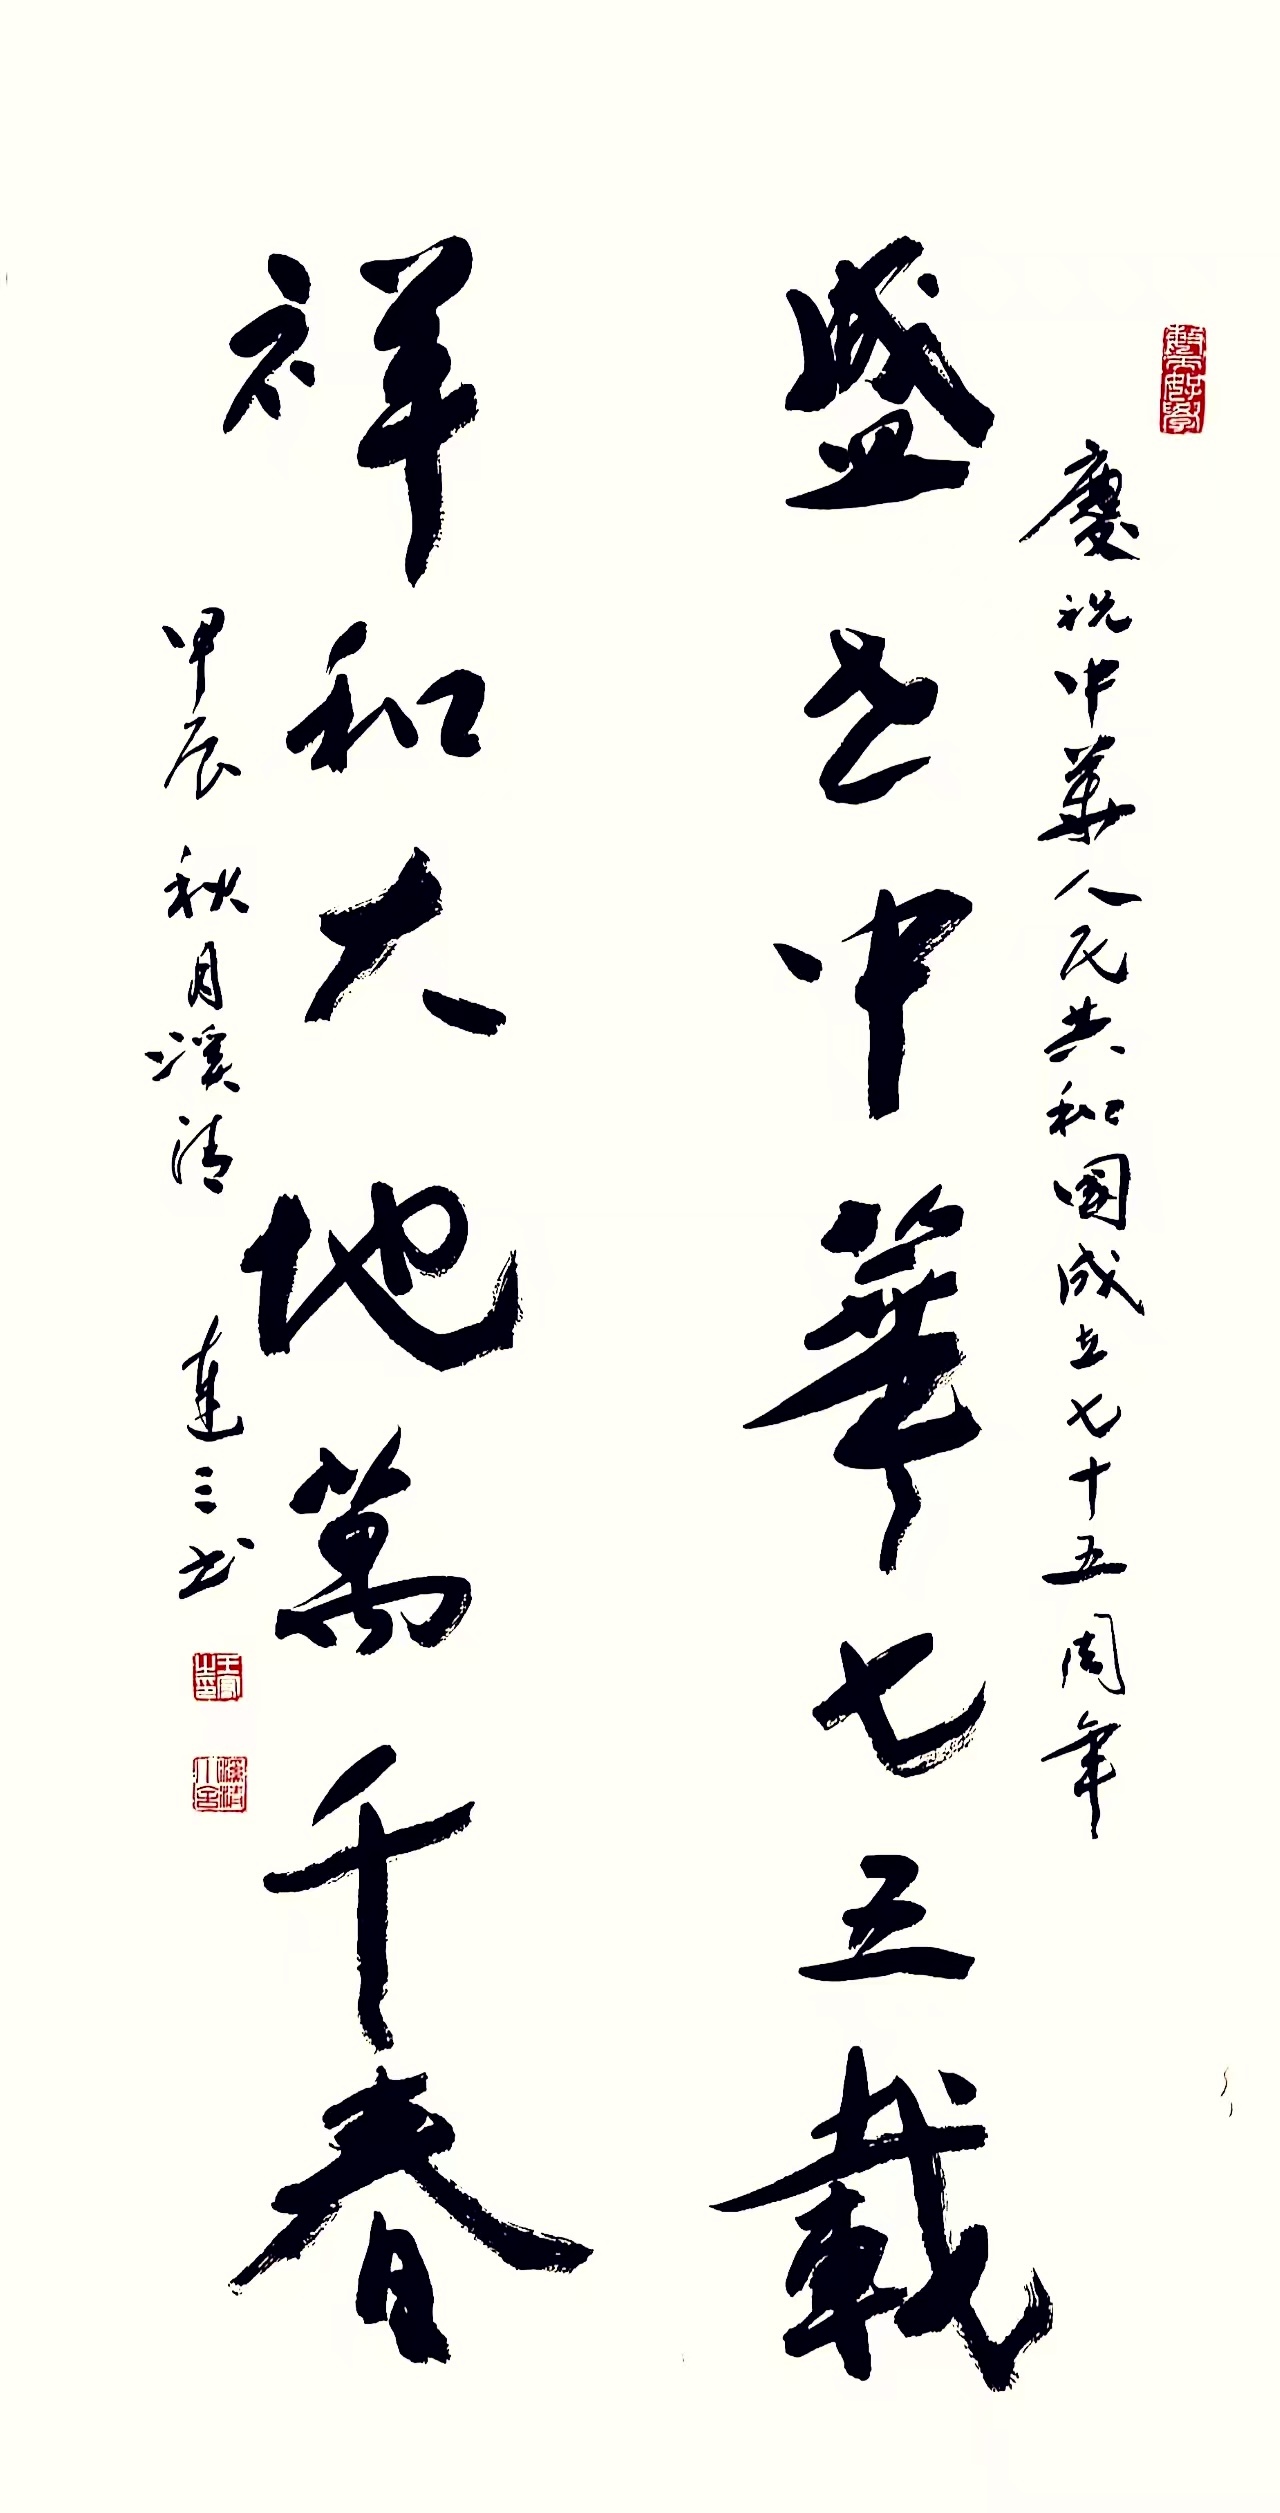 慶祝中華人民共和國成立七十五周年
盛世中華七五載
祥和大地萬千春
甲辰秋月漢清
建三书